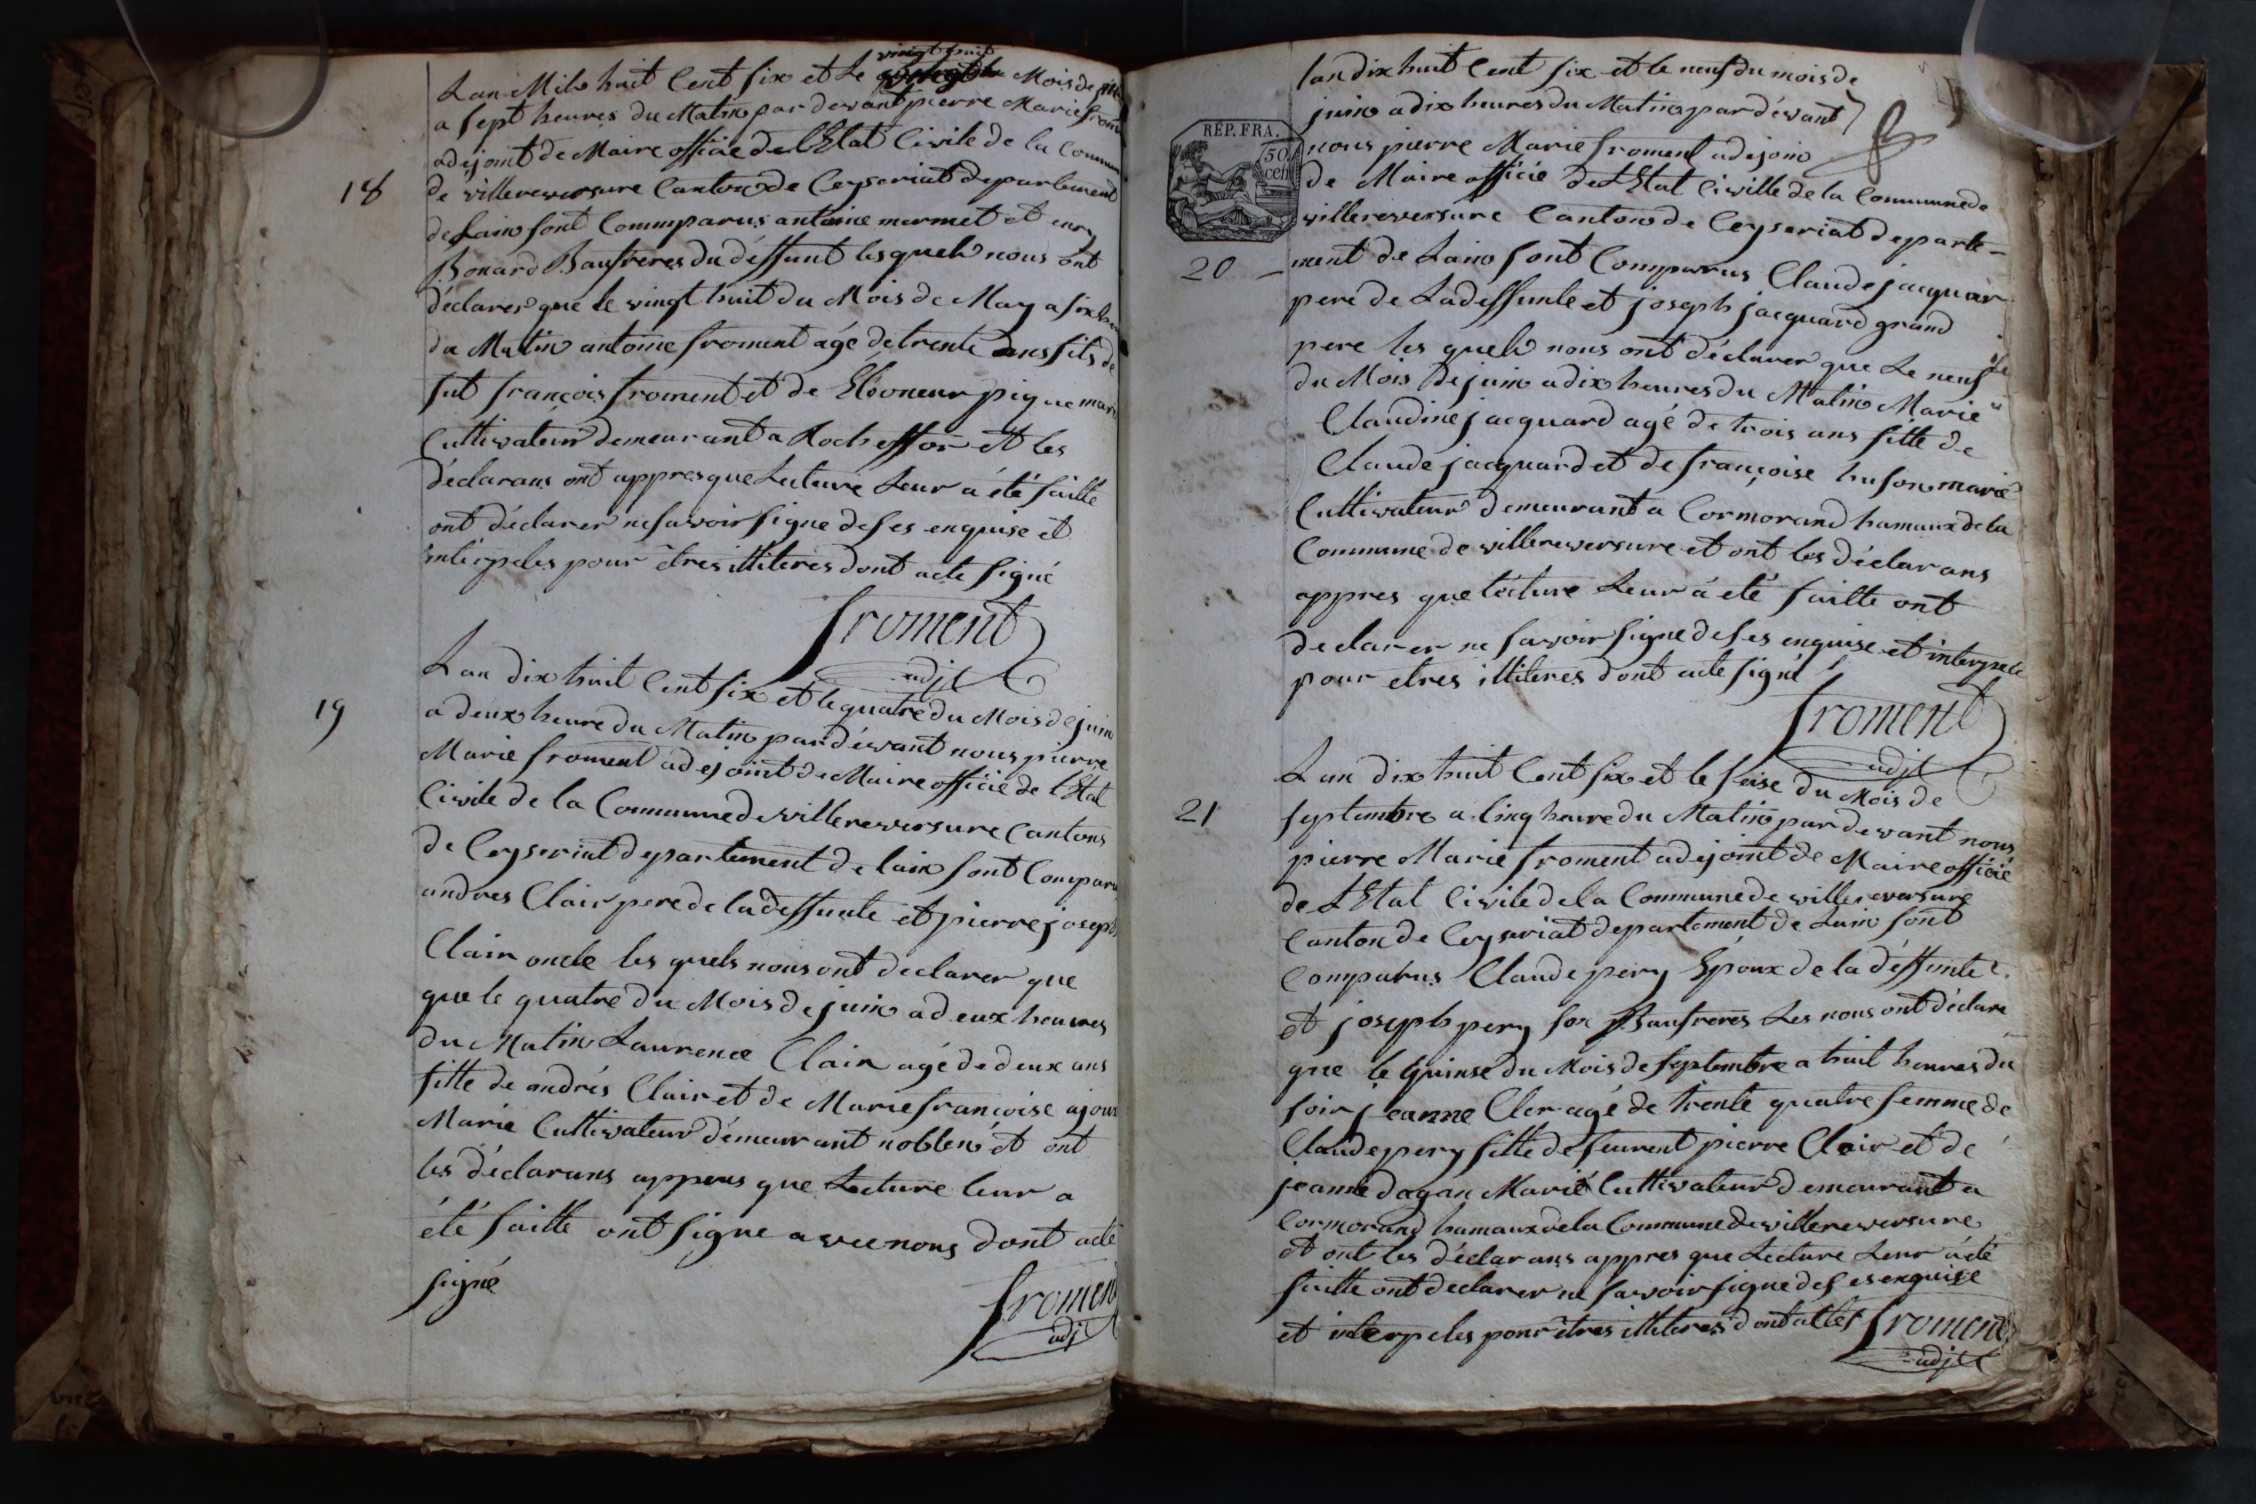 vingt huit
Lan Mile huit Cent six et Le Mois de
a sept heures du Matin par devant pierre Marie from
adejoint de Maire officie de l'Etat Civile de la Commun
18
de villereversure Canton de Ceyseriat departement
de Lain sont Commparus antoine mermet et enry
Bonard Baufreres du déffunt lesquels nous ont
déclarer que le vingt huit du Mois de May a six
du Matin antoine froment agé de trente ans fils de
fut françois froment et de Eléoneur pique marie
Cultivateur demeurant a Rocheffor et les
déclarans ont appres que Lecture Leur a été faitte
ont déclarer ne savoir signe de ses enquise et
interpeles pour êtres illiteres dont acte signé
froment
adjt
19
Lan dix huit Cent six et le quatre du Mois de juin
a deux heure du Matin par dévant nous pierre
Marie froment adejoint de Maire officié de l'Etat
Civile de la Commune de villereversure Cantons
de Ceyseriat departement de lain sont Comparu
andres Clair pere de la deffunte et pierre joseph
Clair oncle les quels nous ont declarer que
que le quatre du Mois de juin a deux heures
du Matin Laurence Clair agé de deux ans
fille de andrés Clair et de Marie françoise ajou
Marié Cultivateur démeurant noblen et ont
les déclarans appres que Lecture leur a
été faitte ont signe avec nous dont acte
signé
froment
adjt
lan dix huit Cent six et le neuf du mois de
juin a dix heures du Matin par dévant
RÉP. FRA.
50
cen
nous pierre Marie froment adejoin
de Maire officié de l'Etat Civille de la Commune de
villereversure Canton de Ceyseriat departe-
20 -
ment de Lain sont Comparus Claude jacquar
peré de La deffunte et joseph jacquard grand
pere les quels nous ont déclarer que Le neuf
du Mois de juin a dix heures du Matin Marie
Claudine jacquard agé de trois ans fille de
Claude jacquard et de françoise huson marié
Cultivateur demeurant a Cormorand hamaux de la
Commune de villereversure et ont les déclarans
appres que lécture Leur a été faitte ont
declarer ne savoir signe de ses enquise et interpele
pour etres illiteres dont acte signé
froment
adjt
21
Lan dix huit Cent six et le seise du Mois de
septembre a Cinq heure du Matin par devant nous
pierre Marie froment adejoint de Maire officié
de L'Etat Civile de la Commune de villereversure
Canton de Ceyseriat departement de Lain sont
Comparus Claude pery Epoux de la déffunte
et joseph pery son Baufreres Les nous ont déclare
que le quinse du Mois de septembre a huit heures du
soir jeanne Cler agé de trente quatre femme de
Claude pery fille de feurent pierre Clair et de
jeanne dagan Marié Cultivateur demeurant a
Cormorand hamaux de la Commune de villereversure
et ont les déclarans appres que Lecture Leur a été
faitte ont declarer ne savoir signe de ses enquise
et interpeles pour êtres illiteres dont acttes froment
adjt